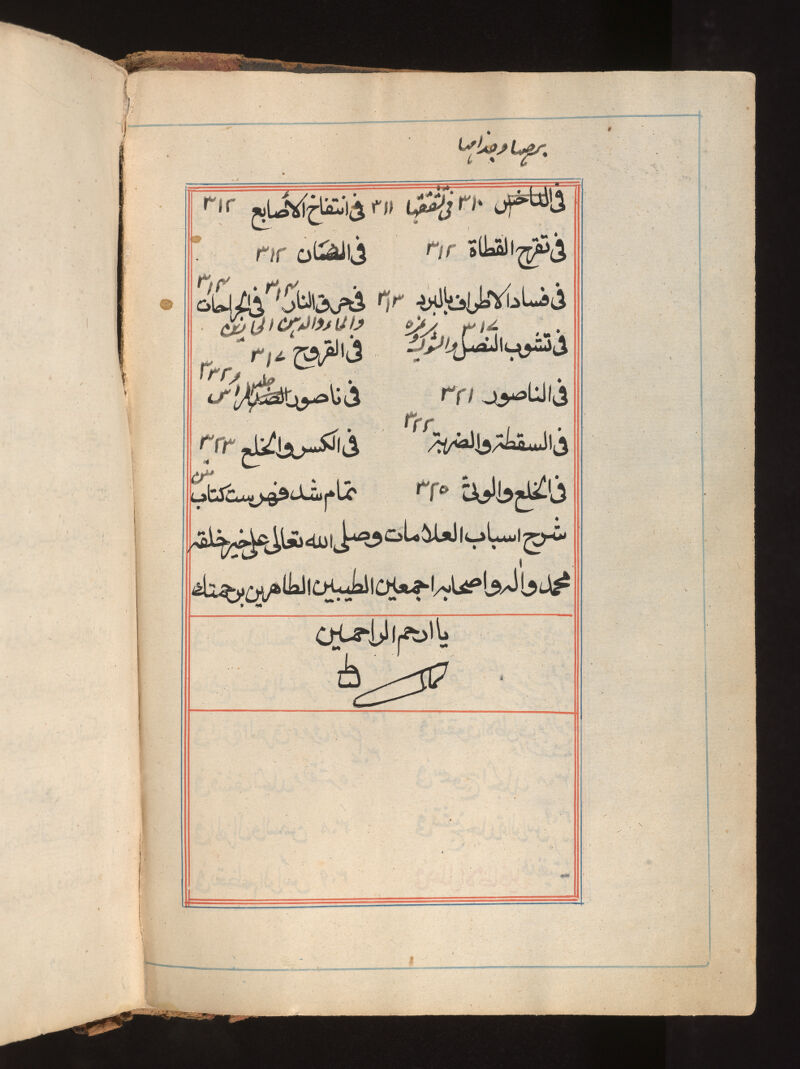 برصها وجذامها
في الداخس ٣١٠ في تشققها ٣١١ في انتفاخ الأصابع ٣١٢
في تقرح القطاة ٣١٢ في الصنان ٣١٢
في فساد الاطراف بالبرد ٣١٣ في حرق النار ٣١٣ في الجراحات ٣١٣
والماء والدهن الحارين
في نشوب النصل والشوك وغيره ٣١٧ في القروح ٣١٧
في الناصور ٣٢١ في ناصور
في السقطة والضربة ٣٢٢ في الكسر والخلع ٣٢٣
في الخلع والوثي ٣٢٥ تمام شد فهرست كتاب متن
شرح اسباب العلامات وصلى الله تعالى على خير خلقه
محمد واله واصحابه اجمعين الطيبين الطاهرين برحمتك
يا ارحم الراحمين